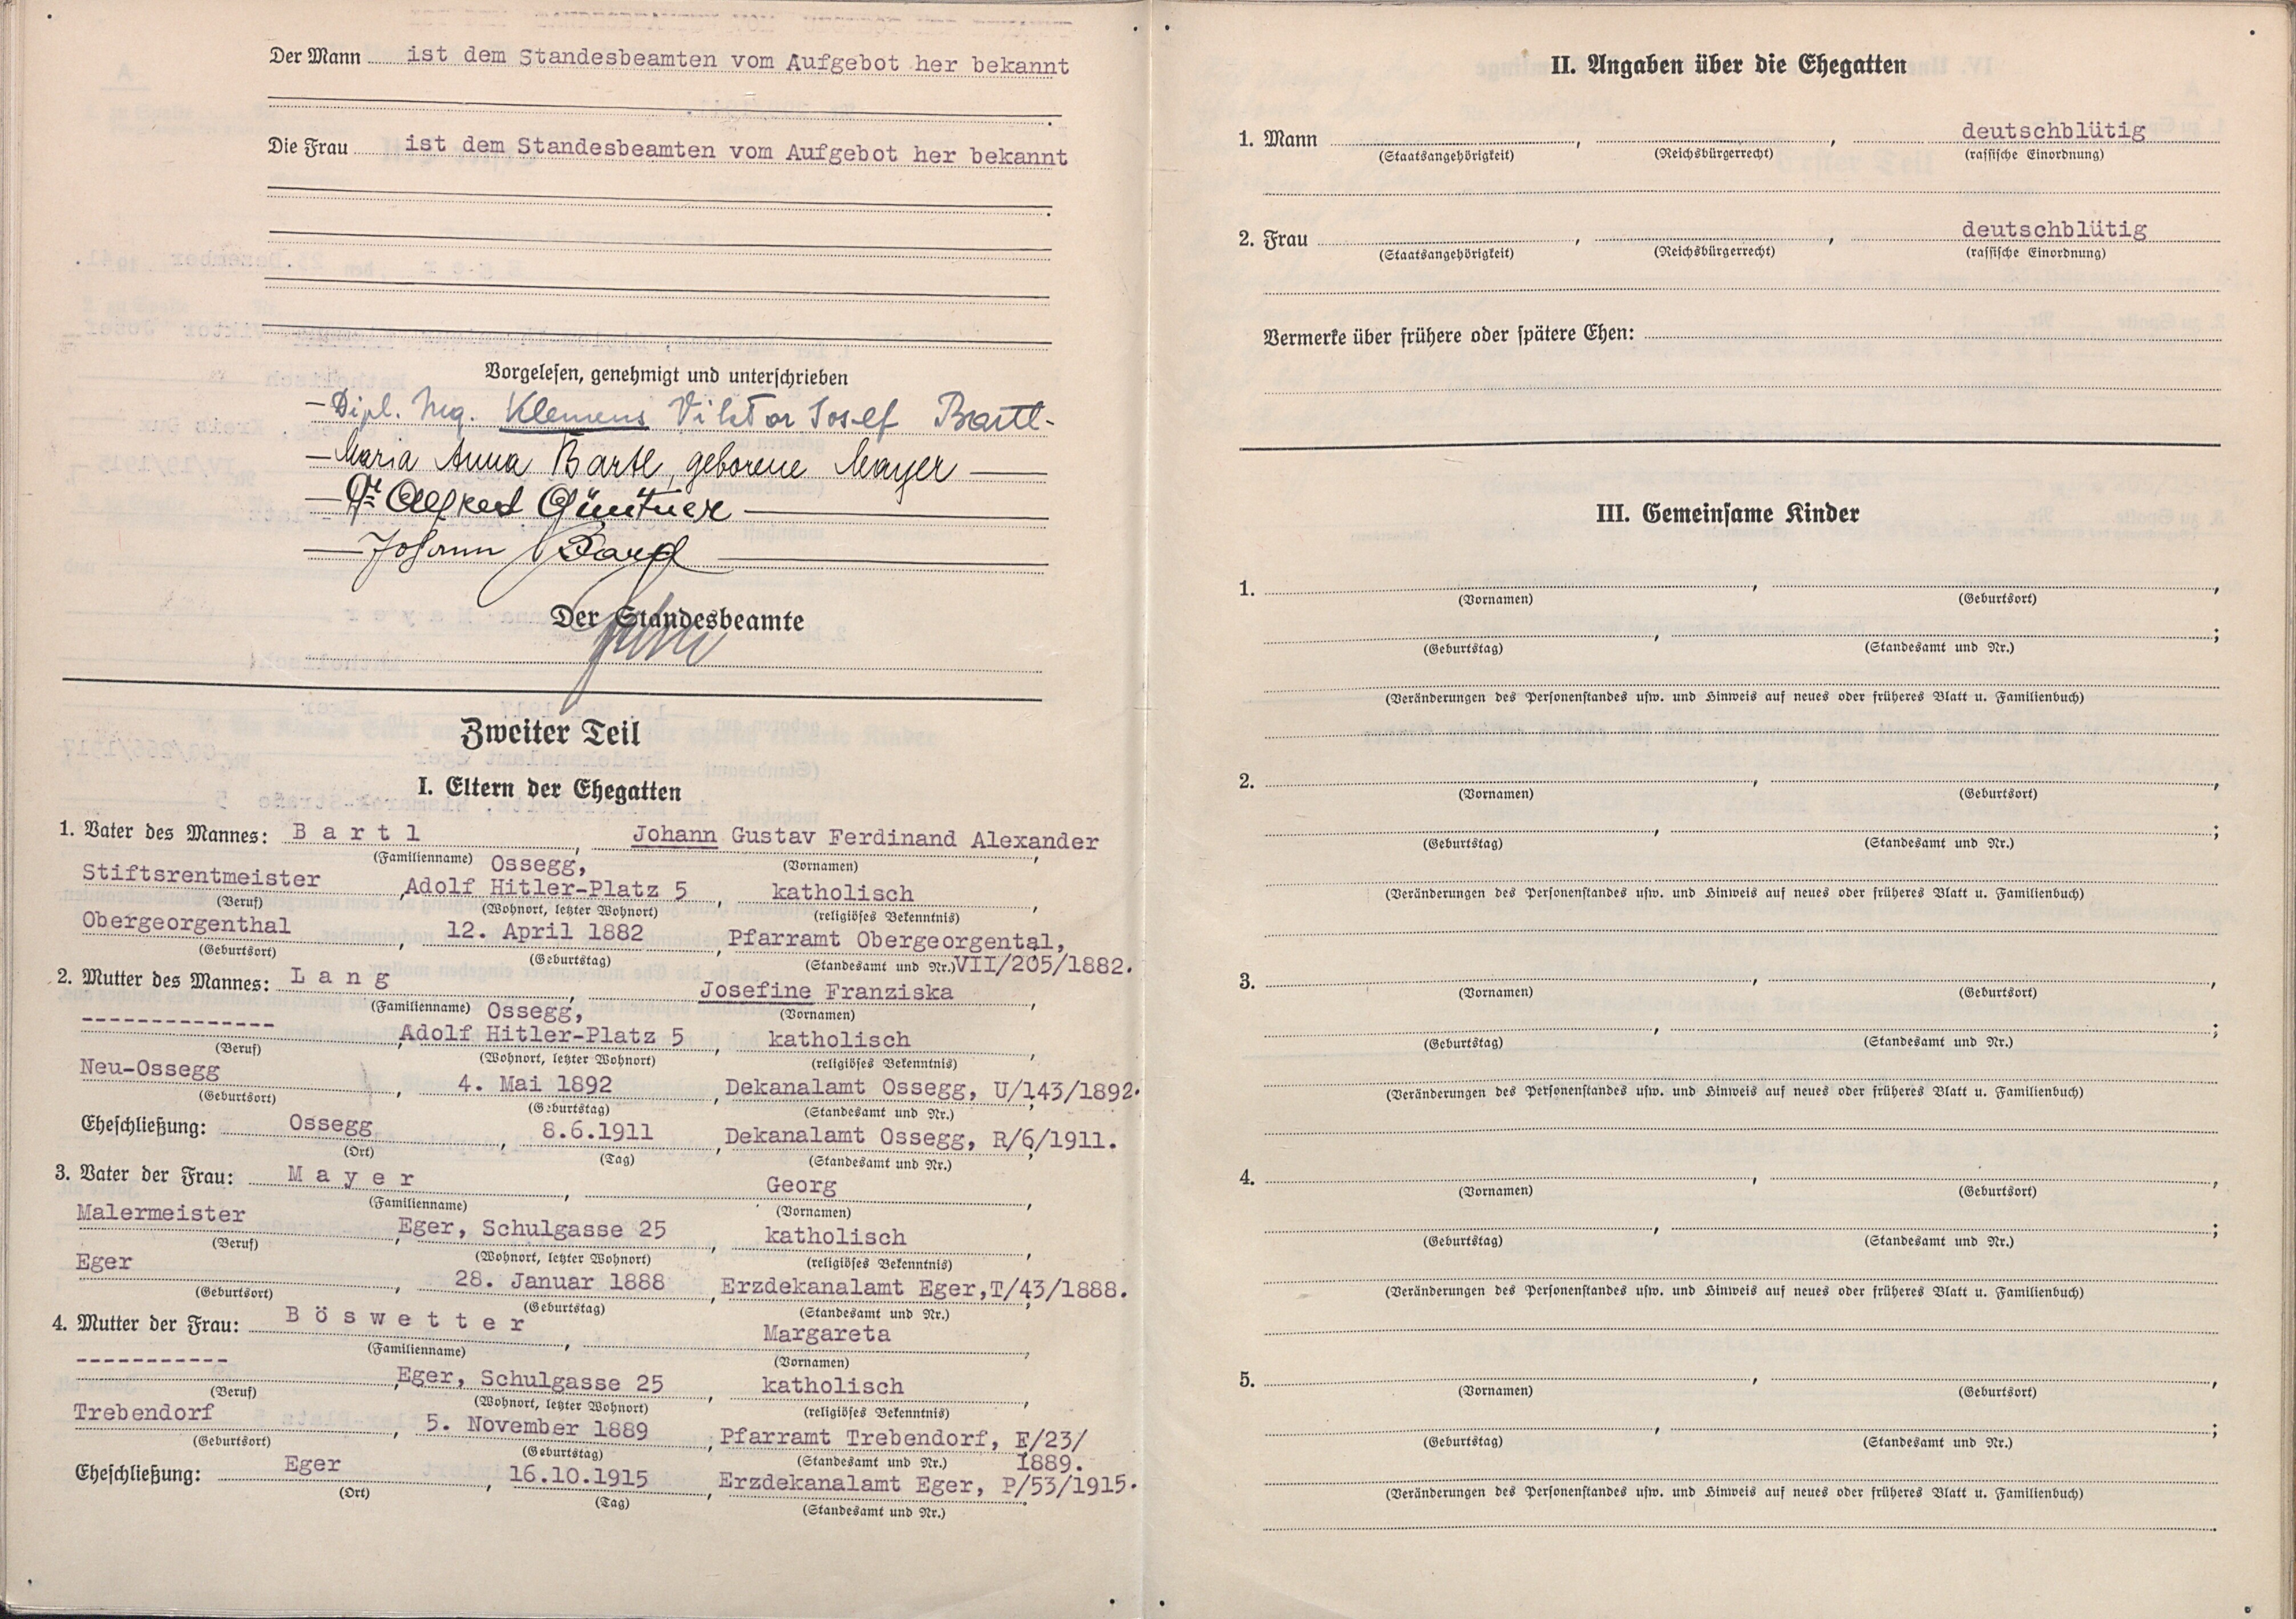 Der Mann ist dem Standesbeamten vom Aufgebot her bekannt
Die Frau ist dem Standesbeamten vom Aufgebot her bekannt
Vorgelesen, genehmigt und unterschrieben
— Dipl. Ing. Klemens Viktor Josef Bartl -
— Maria Anna Bartl, geborene Mayer —
— Dr. Alfred Güntner —
— Johann
Der Standesbeamte
Zweiter Teil
I. Eltern der Ehegatten
1. Vater des Mannes: B a r t l , Johann Gustav Ferdinand Alexander ,
(Familienname) Ossegg, (Vornamen)
Stiftsrentmeister , Adolf Hitler-Platz 5 , katholisch ,
(Beruf) (Wohnort, letzter Wohnort) (religiöses Bekenntnis)
Obergeorgenthal , 12. April 1882 , Pfarramt Obergeorgental,
(Geburtsort) (Geburtstag) (Standesamt und Nr.) VII/205/1882.
2. Mutter des Mannes: L a n g , Josefine Franziska ,
(Familienname) Ossegg, (Vornamen)
-------------- , Adolf Hitler-Platz 5 , katholisch ,
(Beruf) (Wohnort, letzter Wohnort) (religiöses Bekenntnis)
Neu-Ossegg , 4. Mai 1892 , Dekanalamt Ossegg, U/143/1892.
(Geburtsort) (Geburtstag) (Standesamt und Nr.)
Eheschließung: Ossegg , 8.6.1911 , Dekanalamt Ossegg, R/6/1911.
(Ort) (Tag) (Standesamt und Nr.)
3. Vater der Frau: M a y e r , Georg ,
(Familienname) (Vornamen)
Malermeister , Eger, Schulgasse 25 , katholisch ,
(Beruf) (Wohnort, letzter Wohnort) (religiöses Bekenntnis)
Eger , 28. Januar 1888 , Erzdekanalamt Eger,T/43/1888.
(Geburtsort) (Geburtstag) (Standesamt und Nr.)
4. Mutter der Frau: B ö s w e t t e r , Margareta ,
(Familienname) (Vornamen)
----------- , Eger, Schulgasse 25 , katholisch ,
(Beruf) (Wohnort, letzter Wohnort) (religiöses Bekenntnis)
Trebendorf , 5. November 1889 , Pfarramt Trebendorf, E/23/
(Geburtsort) (Geburtstag) (Standesamt und Nr.) 1889.
Eheschließung: Eger , 16.10.1915 , Erzdekanalamt Eger, P/53/1915.
(Ort) (Tag) (Standesamt und Nr.)
II. Angaben über die Ehegatten
1. Mann , , deutschblütig
(Staatsangehörigkeit) (Reichsbürgerrecht) (rassische Einordnung)
2. Frau , , deutschblütig
(Staatsangehörigkeit) (Reichsbürgerrecht) (rassische Einordnung)
Vermerke über frühere oder spätere Ehen:
III. Gemeinsame Kinder
1. , ,
(Vornamen) (Geburtsort)
, ;
(Geburtstag) (Standesamt und Nr.)
(Veränderungen des Personenstandes usw. und Hinweis auf neues oder früheres Blatt u. Familienbuch)
2. , ,
(Vornamen) (Geburtsort)
, ;
(Geburtstag) (Standesamt und Nr.)
(Veränderungen des Personenstandes usw. und Hinweis auf neues oder früheres Blatt u. Familienbuch)
3. , ,
(Vornamen) (Geburtsort)
, ;
(Geburtstag) (Standesamt und Nr.)
(Veränderungen des Personenstandes usw. und Hinweis auf neues oder früheres Blatt u. Familienbuch)
4. , ,
(Vornamen) (Geburtsort)
, ;
(Geburtstag) (Standesamt und Nr.)
(Veränderungen des Personenstandes usw. und Hinweis auf neues oder früheres Blatt u. Familienbuch)
5. , ,
(Vornamen) (Geburtsort)
, ;
(Geburtstag) (Standesamt und Nr.)
(Veränderungen des Personenstandes usw. und Hinweis auf neues oder früheres Blatt u. Familienbuch)